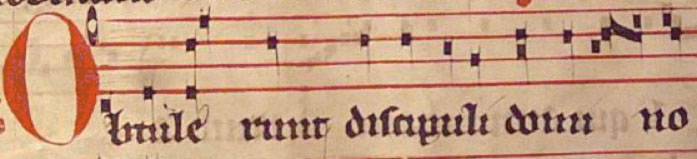 Obtule runt discipuli domi no